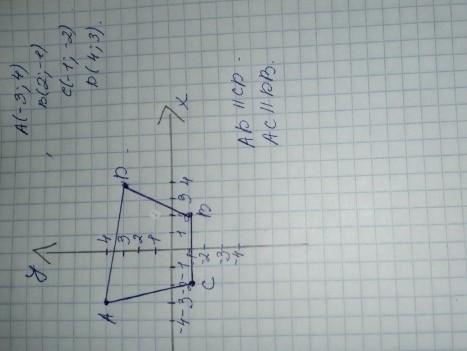 A(-3; 4)
B(2; -1)
C(-1; -2)
D(4; 3).
y
A
D
4
3
2
1
-4 -3 -2 -1 1 2 3 4
x
C
B
-2
-3
-4
AD || CD.
AC || DB.